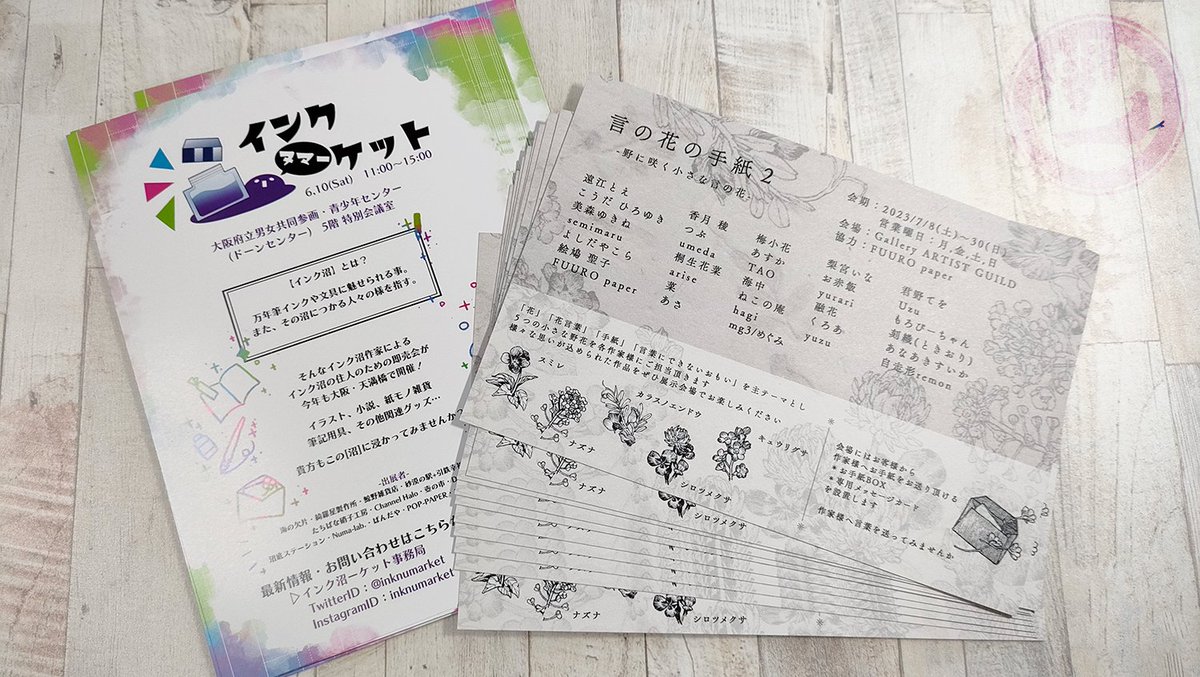 インク
ヌマー
ケット
6.10(Sat) 11:00~15:00
大阪府立男女共同参画・青少年センター
(ドーンセンター) 5階 特別会議室
【インク沼】とは?
万年筆インクや文具に魅せられる事。
また、その沼につかる人々の様を指す。
そんなインク沼作家による
インク沼の住人のための即売会が
今年も大阪・天満橋で開催!
イラスト、小説、紙モノ雑貨
筆記用具、その他関連グッズ…
貴方もこの[沼]に浸かってみませんか?
-出展者-
海の欠片・綺羅屋製作所・鯨野雑貨店・砂流の駅+引鉄
たちばな硝子工房・Channel Halo・壱の市・D
沼底ステーション・Numa-lab.・ぱんだや・POP-PAPER
最新情報・お問い合わせはこちら
▷インク沼ーケット事務局
TwitterID:@inknumarket
InstagramID:inknumarket
言の花の手紙 2
-野に咲く小さな言の花-
会期:2023/7/8(土)~30(日)
営業曜日:月,金,土,日
会場:Gallery ARTIST GUILD
協力:FUURO paper
遠江とえ
こうだ ひろゆき
美森ゆきね
semimaru
よしだやこら
絵鳩 聖子
FUURO paper
香月 稜
つぶ
umeda
桐生花菜
arise
菜
あさ
梅小花
あすか
TAO
海中
ねこの庵
hagi
mg3/めぐみ
梨宮いな
お赤飯
yurari
融花
くろあ
yuzu
君野てを
Uzu
もろぴーちゃん
刻織(ときおり)
あなあきすいか
自走形remon
「花」「花言葉」「手紙」「言葉にできないおもい」を主テーマとし
5つの小さな野花を各作家様にご担当頂きます
様々な思いが込められた作品をぜひ展示会場でお楽しみください
スミレ
ナズナ
カラスノエンドウ
シロツメクサ
キュウリグサ
会場にはお客様から
作家様へお手紙をお送り頂ける
*お手紙BOX
*専用メッセージカード
を設置します
作家様へ言葉を送ってみませんか
ナズナ
シロツメクサ
ナズナ
シロツメクサ